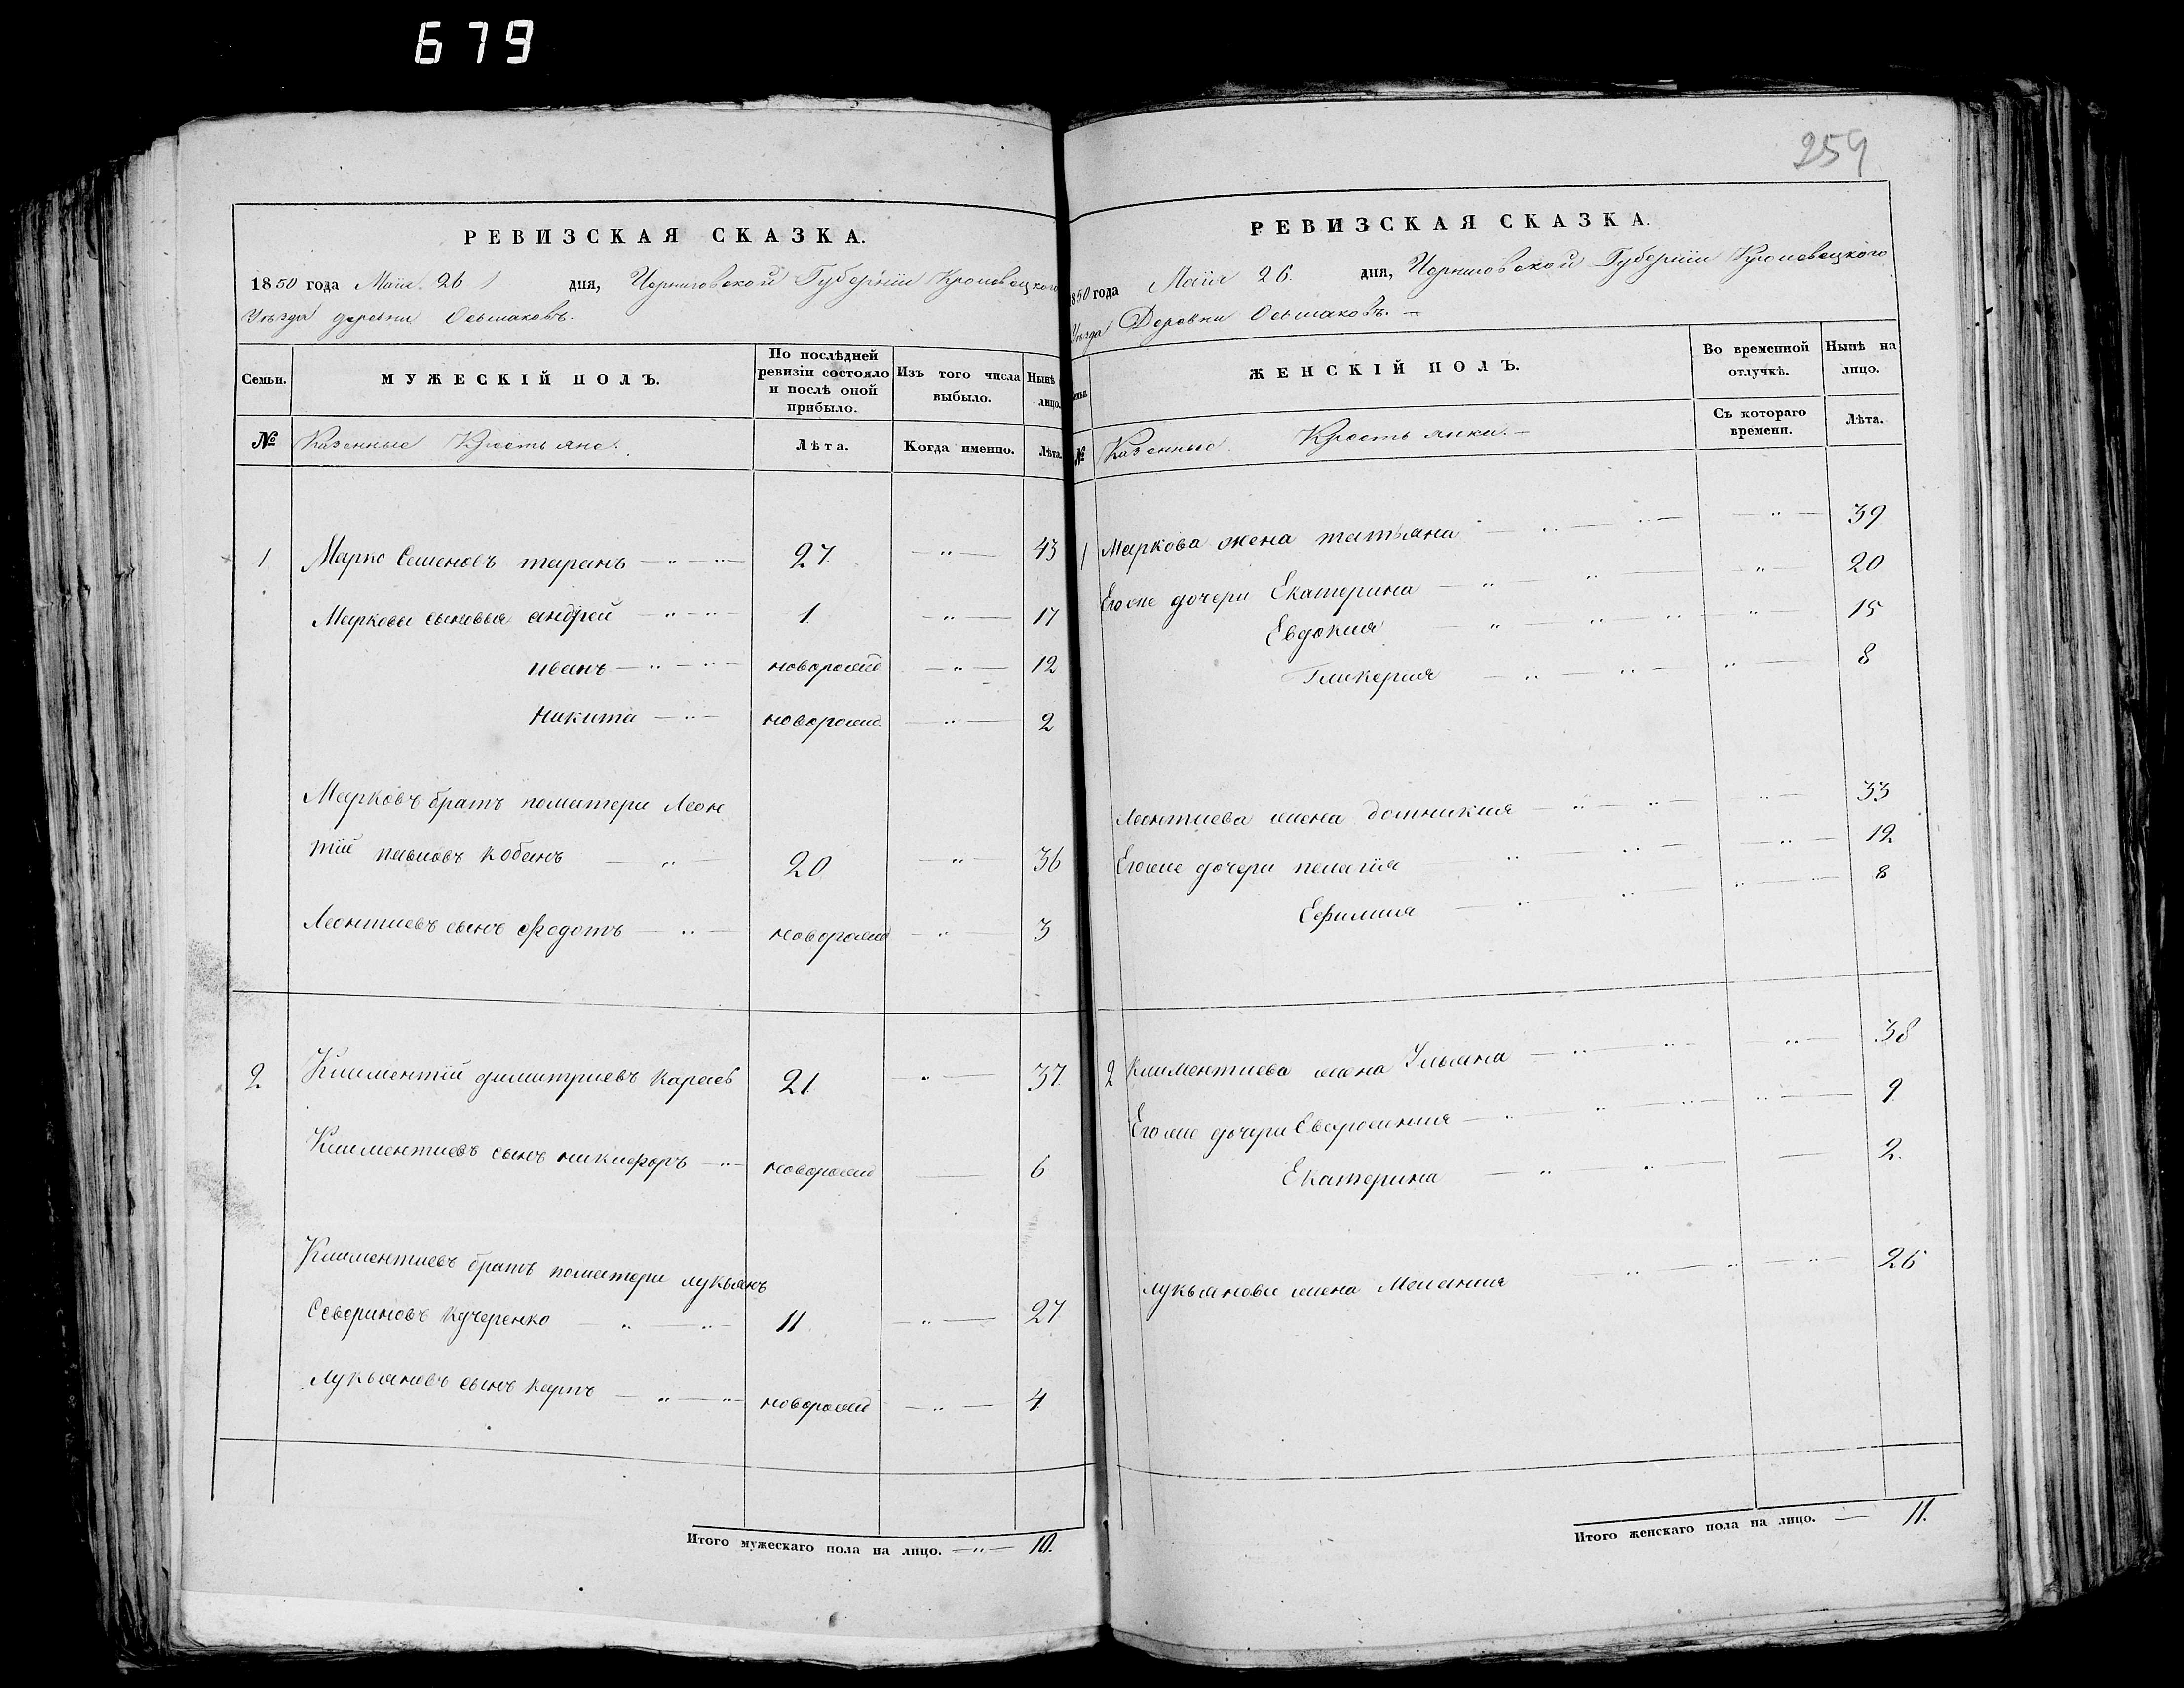 679
РЕВИЗСКАЯ СКАЗКА.
1850 года Маія 26 дня, Черниговской Губерніи Кролевецкого
Уѣзда деревни Осьмаковъ.
Семьи.
МУЖЕСКІЙ ПОЛЪ.
По послѣдней ревизіи состояло и послѣ оной прибыло.
Изъ того числа выбыло.
Нынѣ лицо.
№ Казенные Крестьяне. Лѣта. Когда именно. Лѣта.
1 Марко Семеновъ таранъ — 27 — 43
Марковы сыновья андрей — 1. — 17
иванъ — новорожд — 12
никита — новорожд. — 2
Марковъ братъ поматери Леон
тій павловъ кобанъ — 20 — 36
Леонтиевъ сынъ федотъ — новорожд — 3
2 Климентій димитриевъ карась 21. — 37.
Климентиевъ сынъ никифоръ — новорожд — 6
Климентиевъ братъ поматери лукьянъ
Севериновъ кучеренко — 11 — 27
Лукьяновъ сынъ карпъ — новорожд — 4
Итого мужескаго пола на лицо. — 10.
259
РЕВИЗСКАЯ СКАЗКА.
850 года Маія 26. дня, Черниговской Губерніи Кролевецкого
Уѣзда Деревни Осьмаковъ. —
ЖЕНСКІЙ ПОЛЪ.
Во временной отлучкѣ.
Нынѣ на лицо.
№ Казенные Крестьянки. —
Съ котораго времени.
Лѣта.
1 Маркова жена татьяна — 39
Его же дочери Екатерина — 20
Евдокия — 15
Гликерия — 8
Леонтиева жена домникия — 33
Его же дочери пелагія — 12
Ефимия — 8
2 Климентиева жена Ульяна — 38
Его же дочери Евфросиния — 9
Екатерина — 2.
лукьянова жена Мелания — 26
Итого женскаго пола на лицо. — 11.